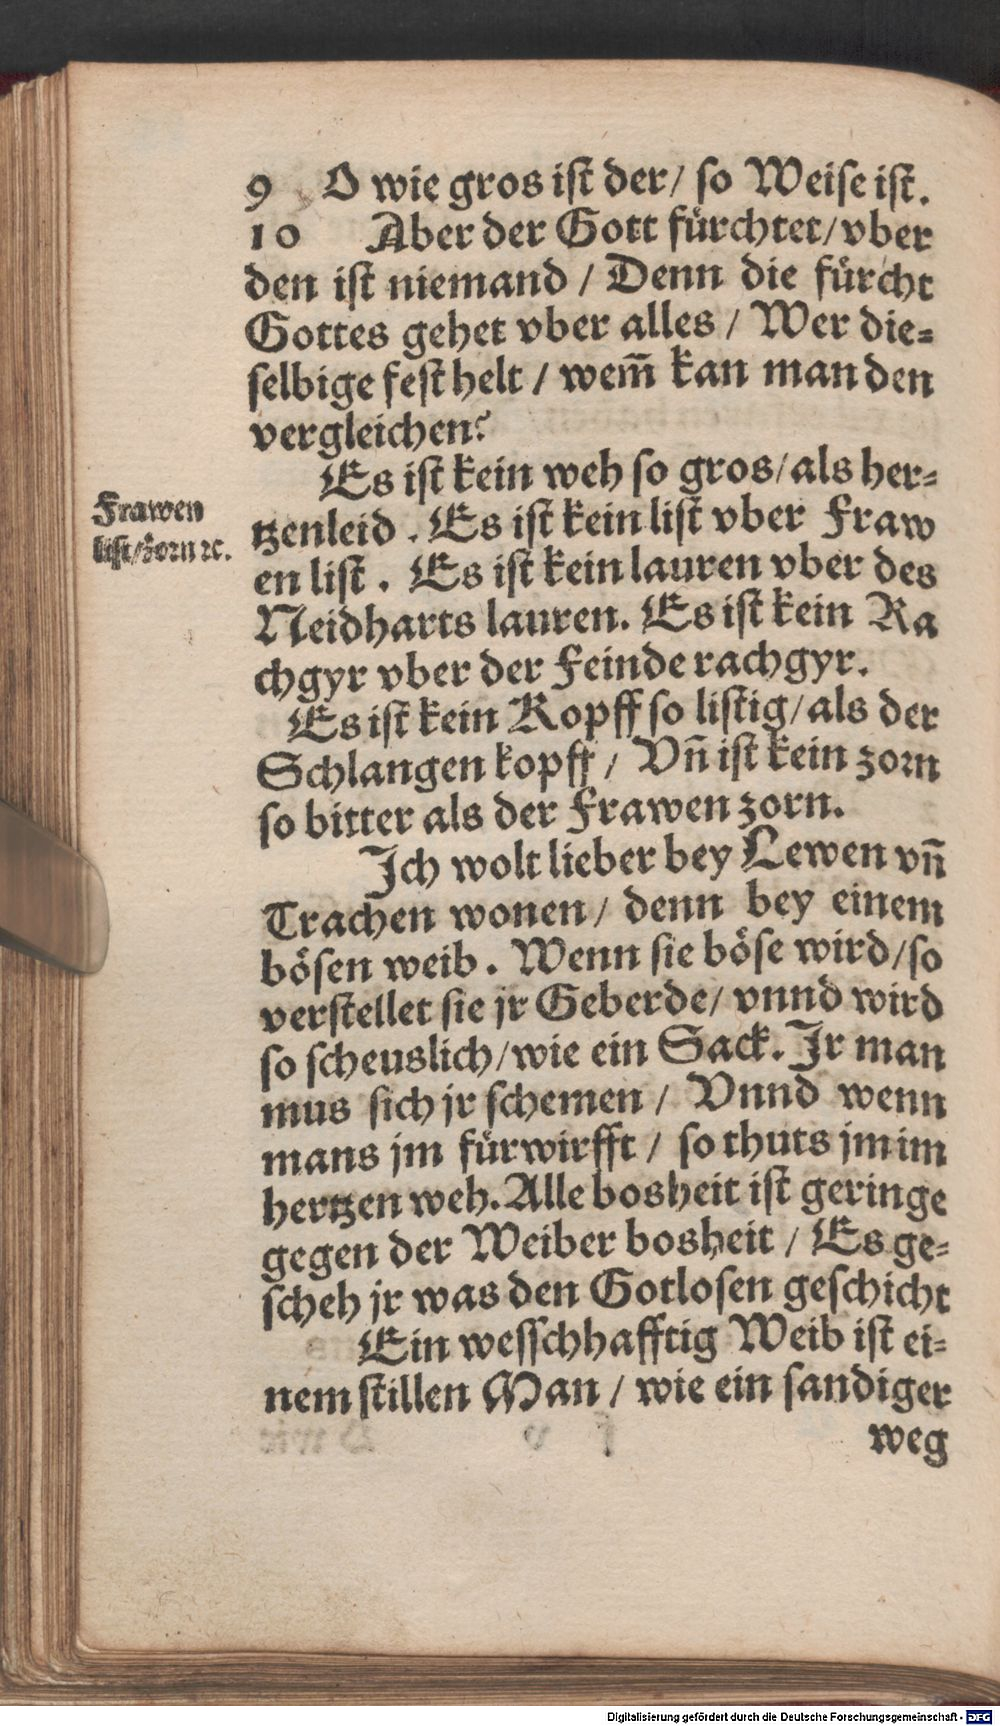 9 O wie gros ist der/ so Weise ist.
10 Aber der Gott fürchtet/ vber
den ist niemand / Denn die fürcht
Gottes gehet vber alles / Wer die=
selbige fest helt / wem̃ kan man den
vergleichen?
Es ist kein weh so gros/ als her=
tzenleid . Es ist kein list vber Fraw
en list . Es ist kein lauren vber des
Neidharts lauren. Es ist kein Ra
chgyr vber der Feinde rachgyr.
Es ist kein Kopff so listig/ als der
Schlangen kopff / Vñ ist kein zorn
so bitter als der Frawen zorn.
Ich wolt lieber bey Lewen vñ
Trachen wonen / denn bey einem
bösen weib . Wenn sie böse wird/ so
verstellet sie jr Geberde/ vnnd wird
so scheuslich/ wie ein Sack. Jr man
mus sich jr schemen / Vnnd wenn
mans jm fürwirfft / so thuts jm im
hertzen weh. Alle bosheit ist geringe
gegen der Weiber bosheit / Es ge=
scheh jr was den Gotlosen geschicht
Ein wesschhafftig Weib ist ei=
nem stillen Man / wie ein sandiger
weg
Frawen
list/ zorn ꝛc.
Digitalisierung gefördert durch die Deutsche Forschungsgemeinschaft - DFG